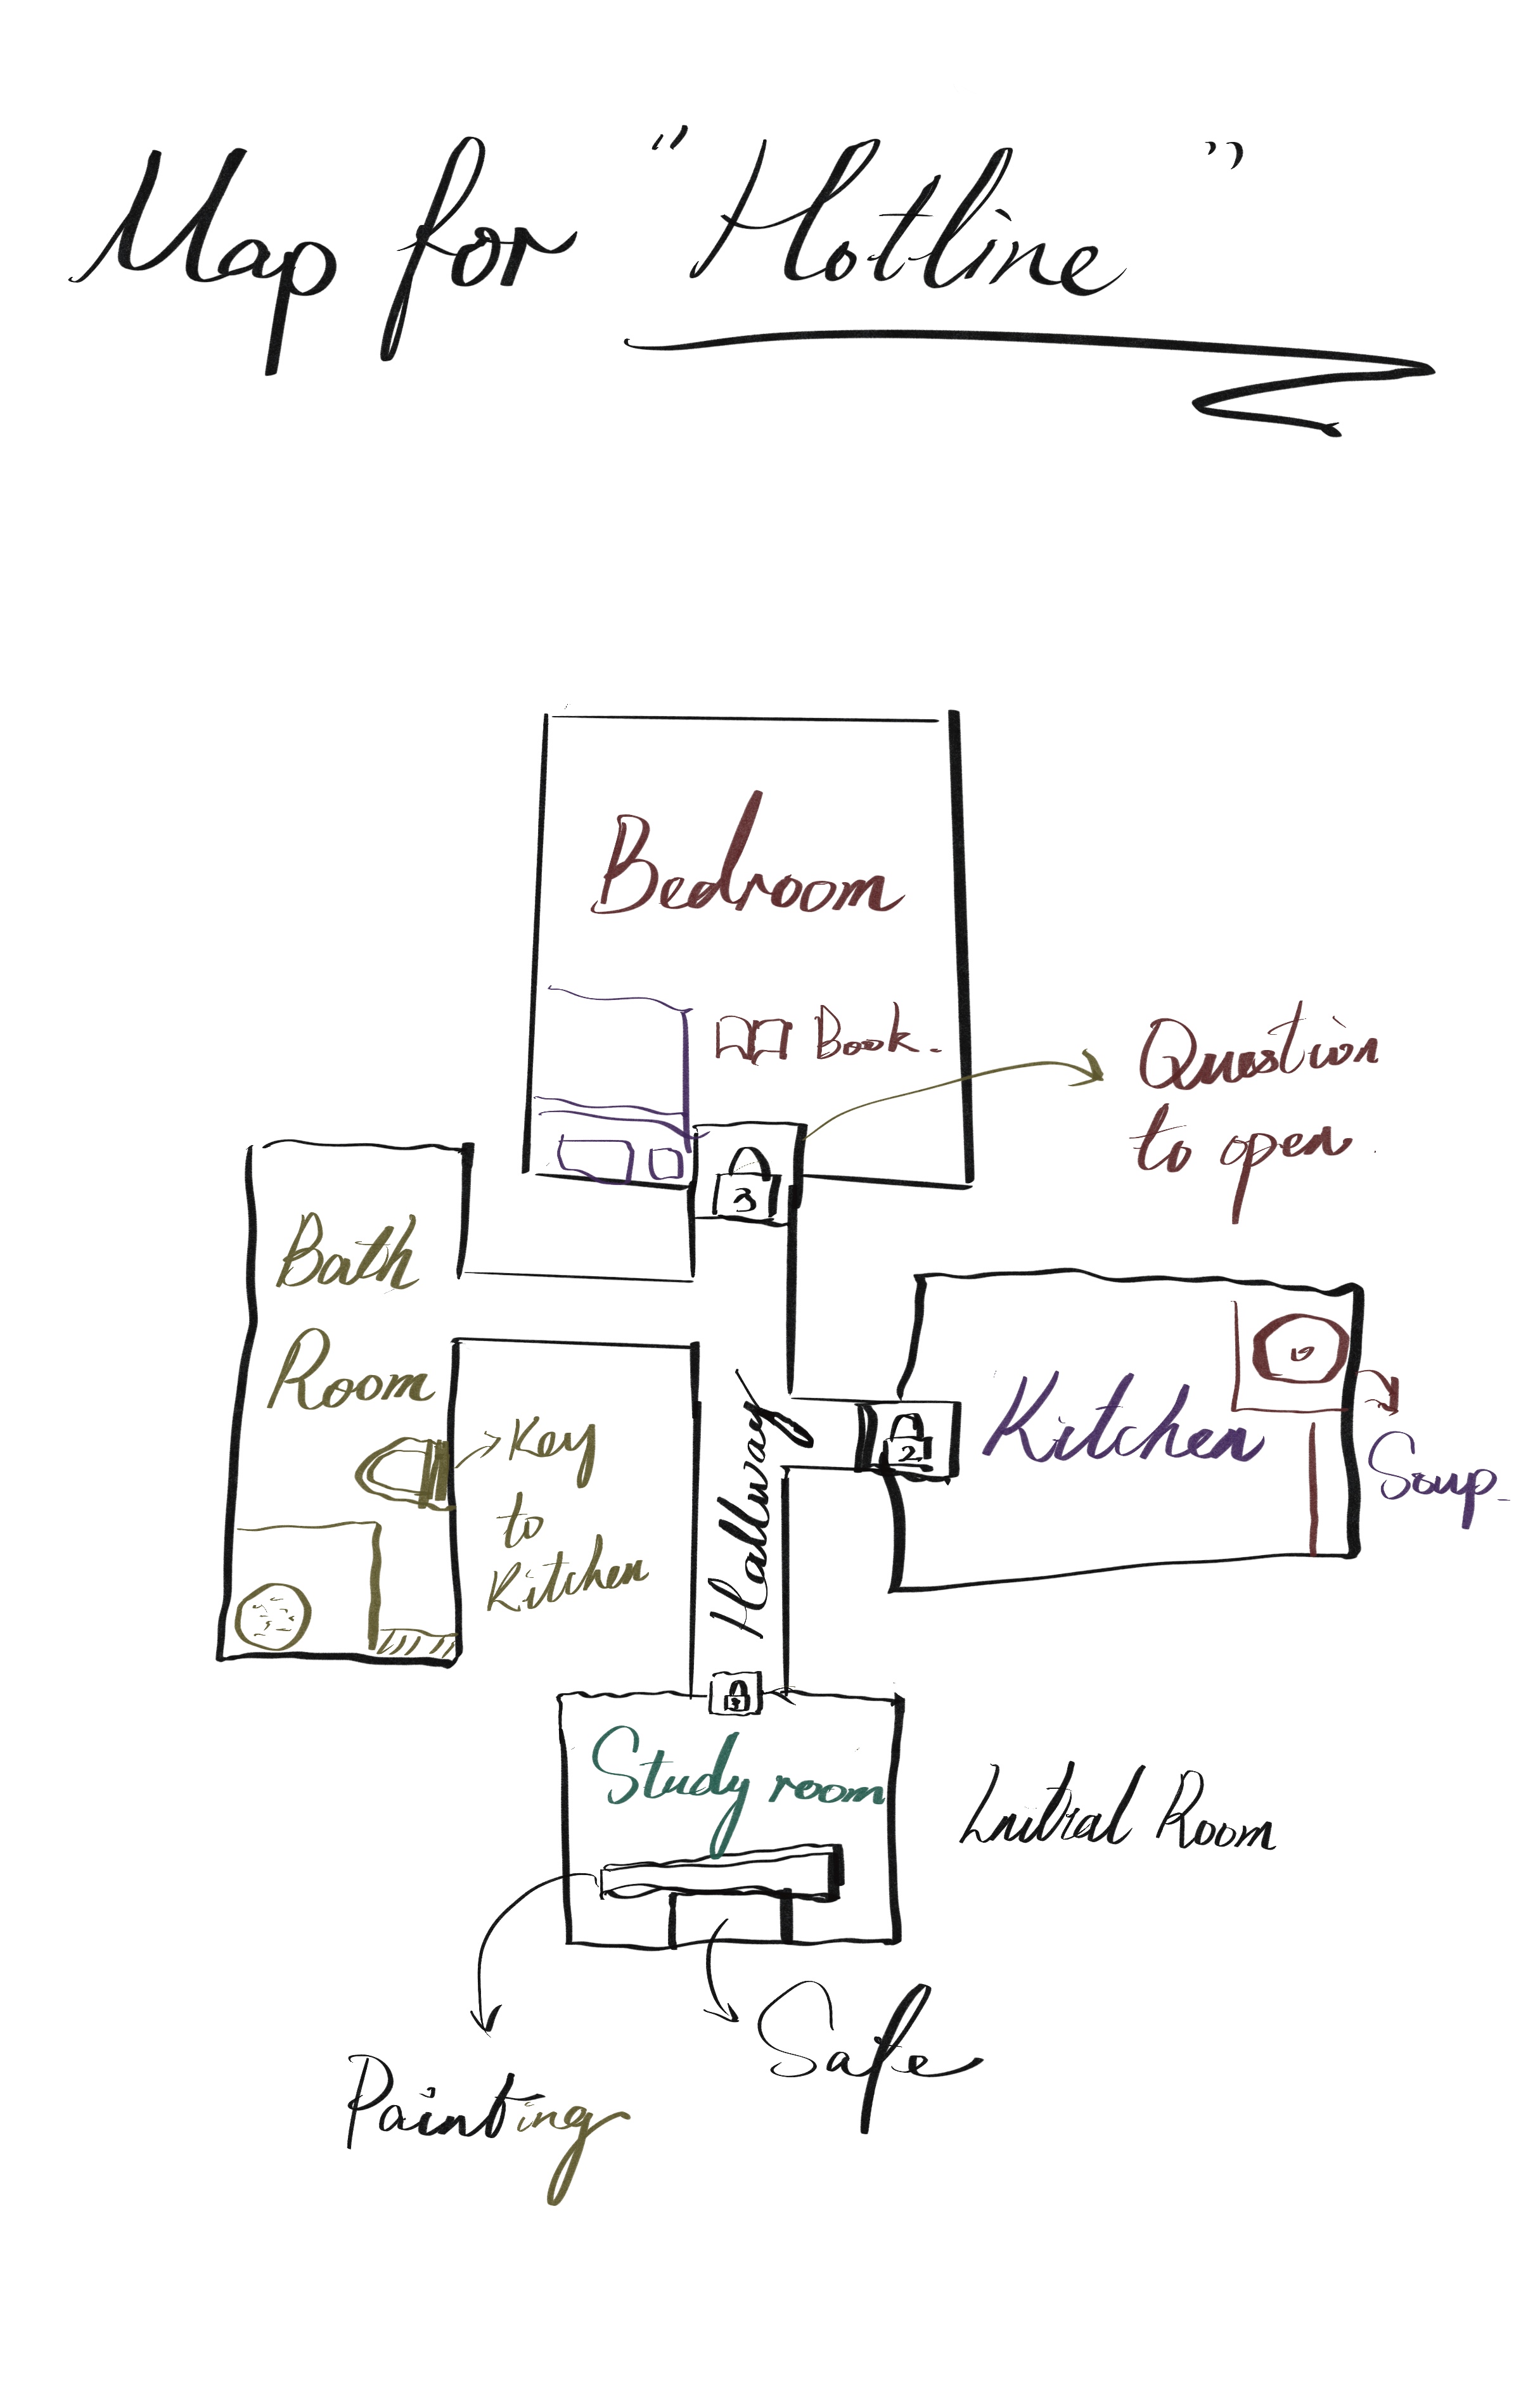 Map for "Hotline"
Bedroom
Book.
Question
to open
3
Bath
Room
Key
to
Kitchen
Hallway
2
Kitchen
Soup
Study room
Initial Room
Safe
Painting